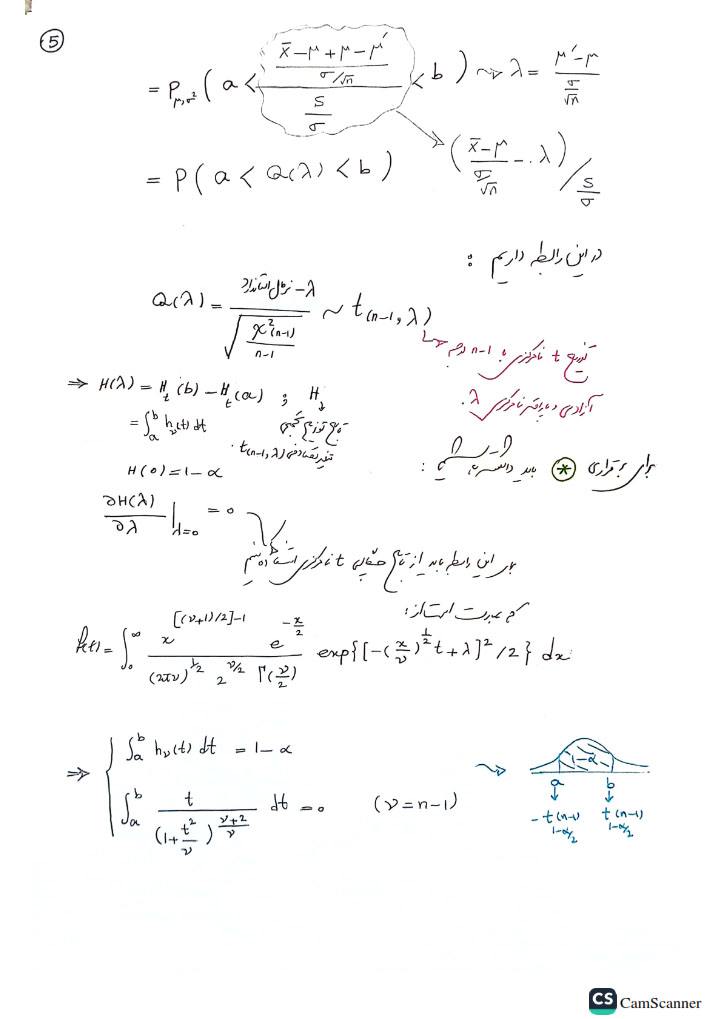 5
= P_{μ,σ²} ( a < \frac{\frac{x̄-μ+μ-μ′}{σ/√n}}{\frac{S}{σ}} < b ) ⇝ λ = \frac{μ′-μ}{\frac{σ}{√n}}
= P( a < Q(λ) < b ) ( \frac{x̄-μ}{\frac{σ}{√n}} - λ ) / \frac{S}{σ}
در این رابطه داریم :
Q(λ) = \frac{نرمال استاندارد - λ}{\sqrt{\frac{χ²(n-1)}{n-1}}} ~ t(n-1, λ)
توزیع t نامرکزی با n-1 درجه
آزادی و پارامتر نامرکزی λ.
⇒ H(λ) = H_t(b) - H_t(a) ; H
= ∫_a^b h_ν(t) dt
تابع توزیع تجمعی
متغیر تصادفی t(n-1, λ).
برای برقراری * باید داشته باشیم :
H(0) = 1-α
\frac{∂H(λ)}{∂λ}|_{λ=0} = 0
در این رابطه باید از تابع چگالی t نامرکزی استفاده کنیم
که عبارت است از:
h(t) = ∫_0^∞ \frac{x^{[(ν+1)/2]-1} e^{-\frac{x}{2}}}{(2πν)^{1/2} 2^{ν/2} Γ(\frac{ν}{2})} exp{[-(\frac{x}{ν})^{\frac{1}{2}} t + λ]² /2} dx
⇒ { ∫_a^b h_ν(t) dt = 1-α
∫_a^b \frac{t}{(1+\frac{t²}{ν})^{\frac{ν+2}{ν}}} dt = 0 (ν = n-1)
1-α
a b
-t(n-1) 1-α/2 t(n-1) 1-α/2
CS CamScanner